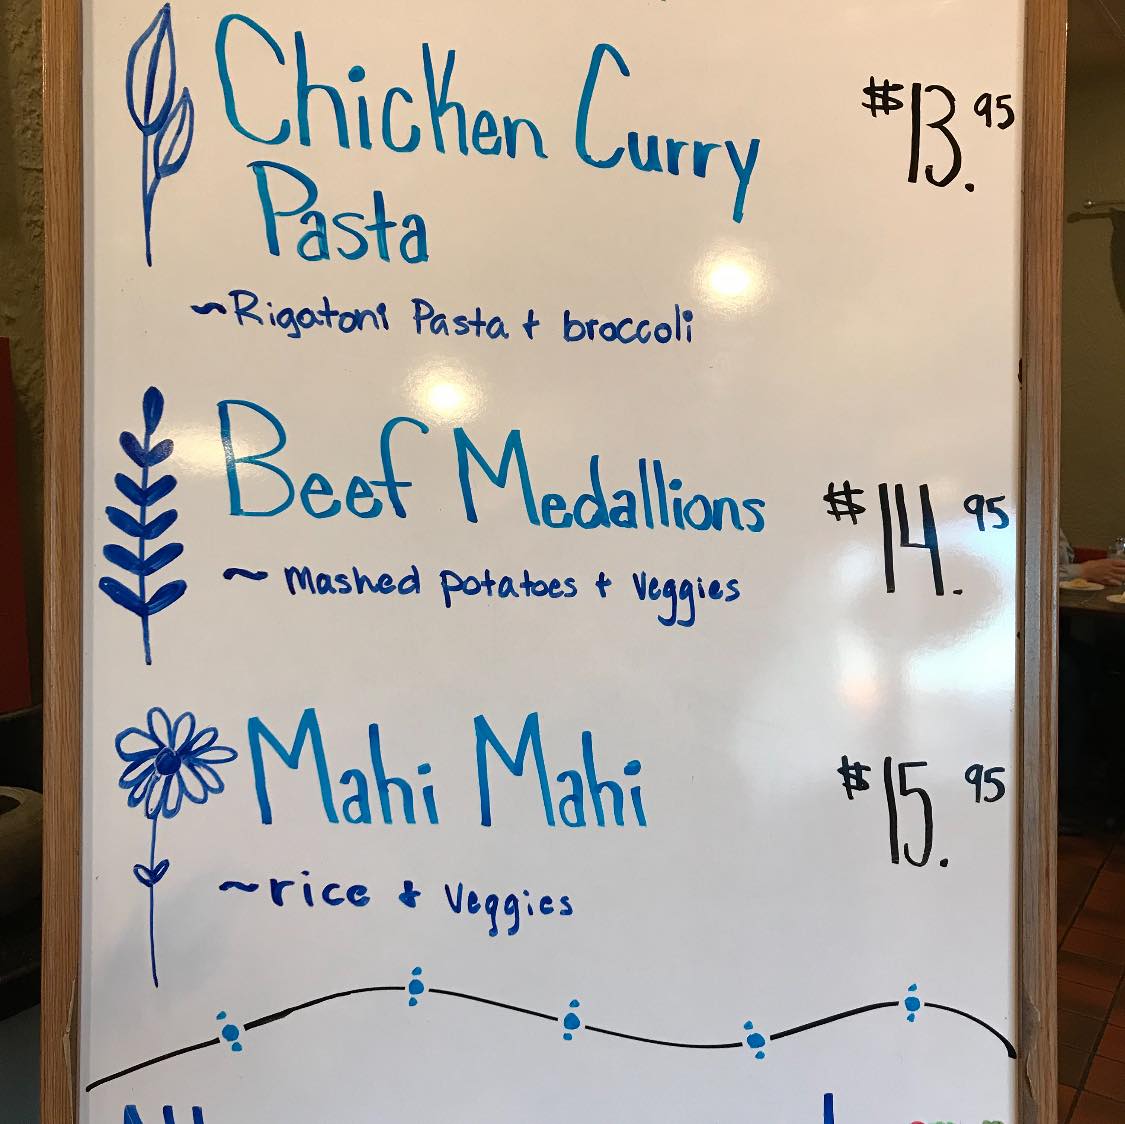 Chicken Curry $13.95
Pasta
~Rigatoni Pasta + broccoli
Beef Medallions $14.95
~ Mashed potatoes + Veggies
Mahi Mahi $15.95
~rice & Veggies